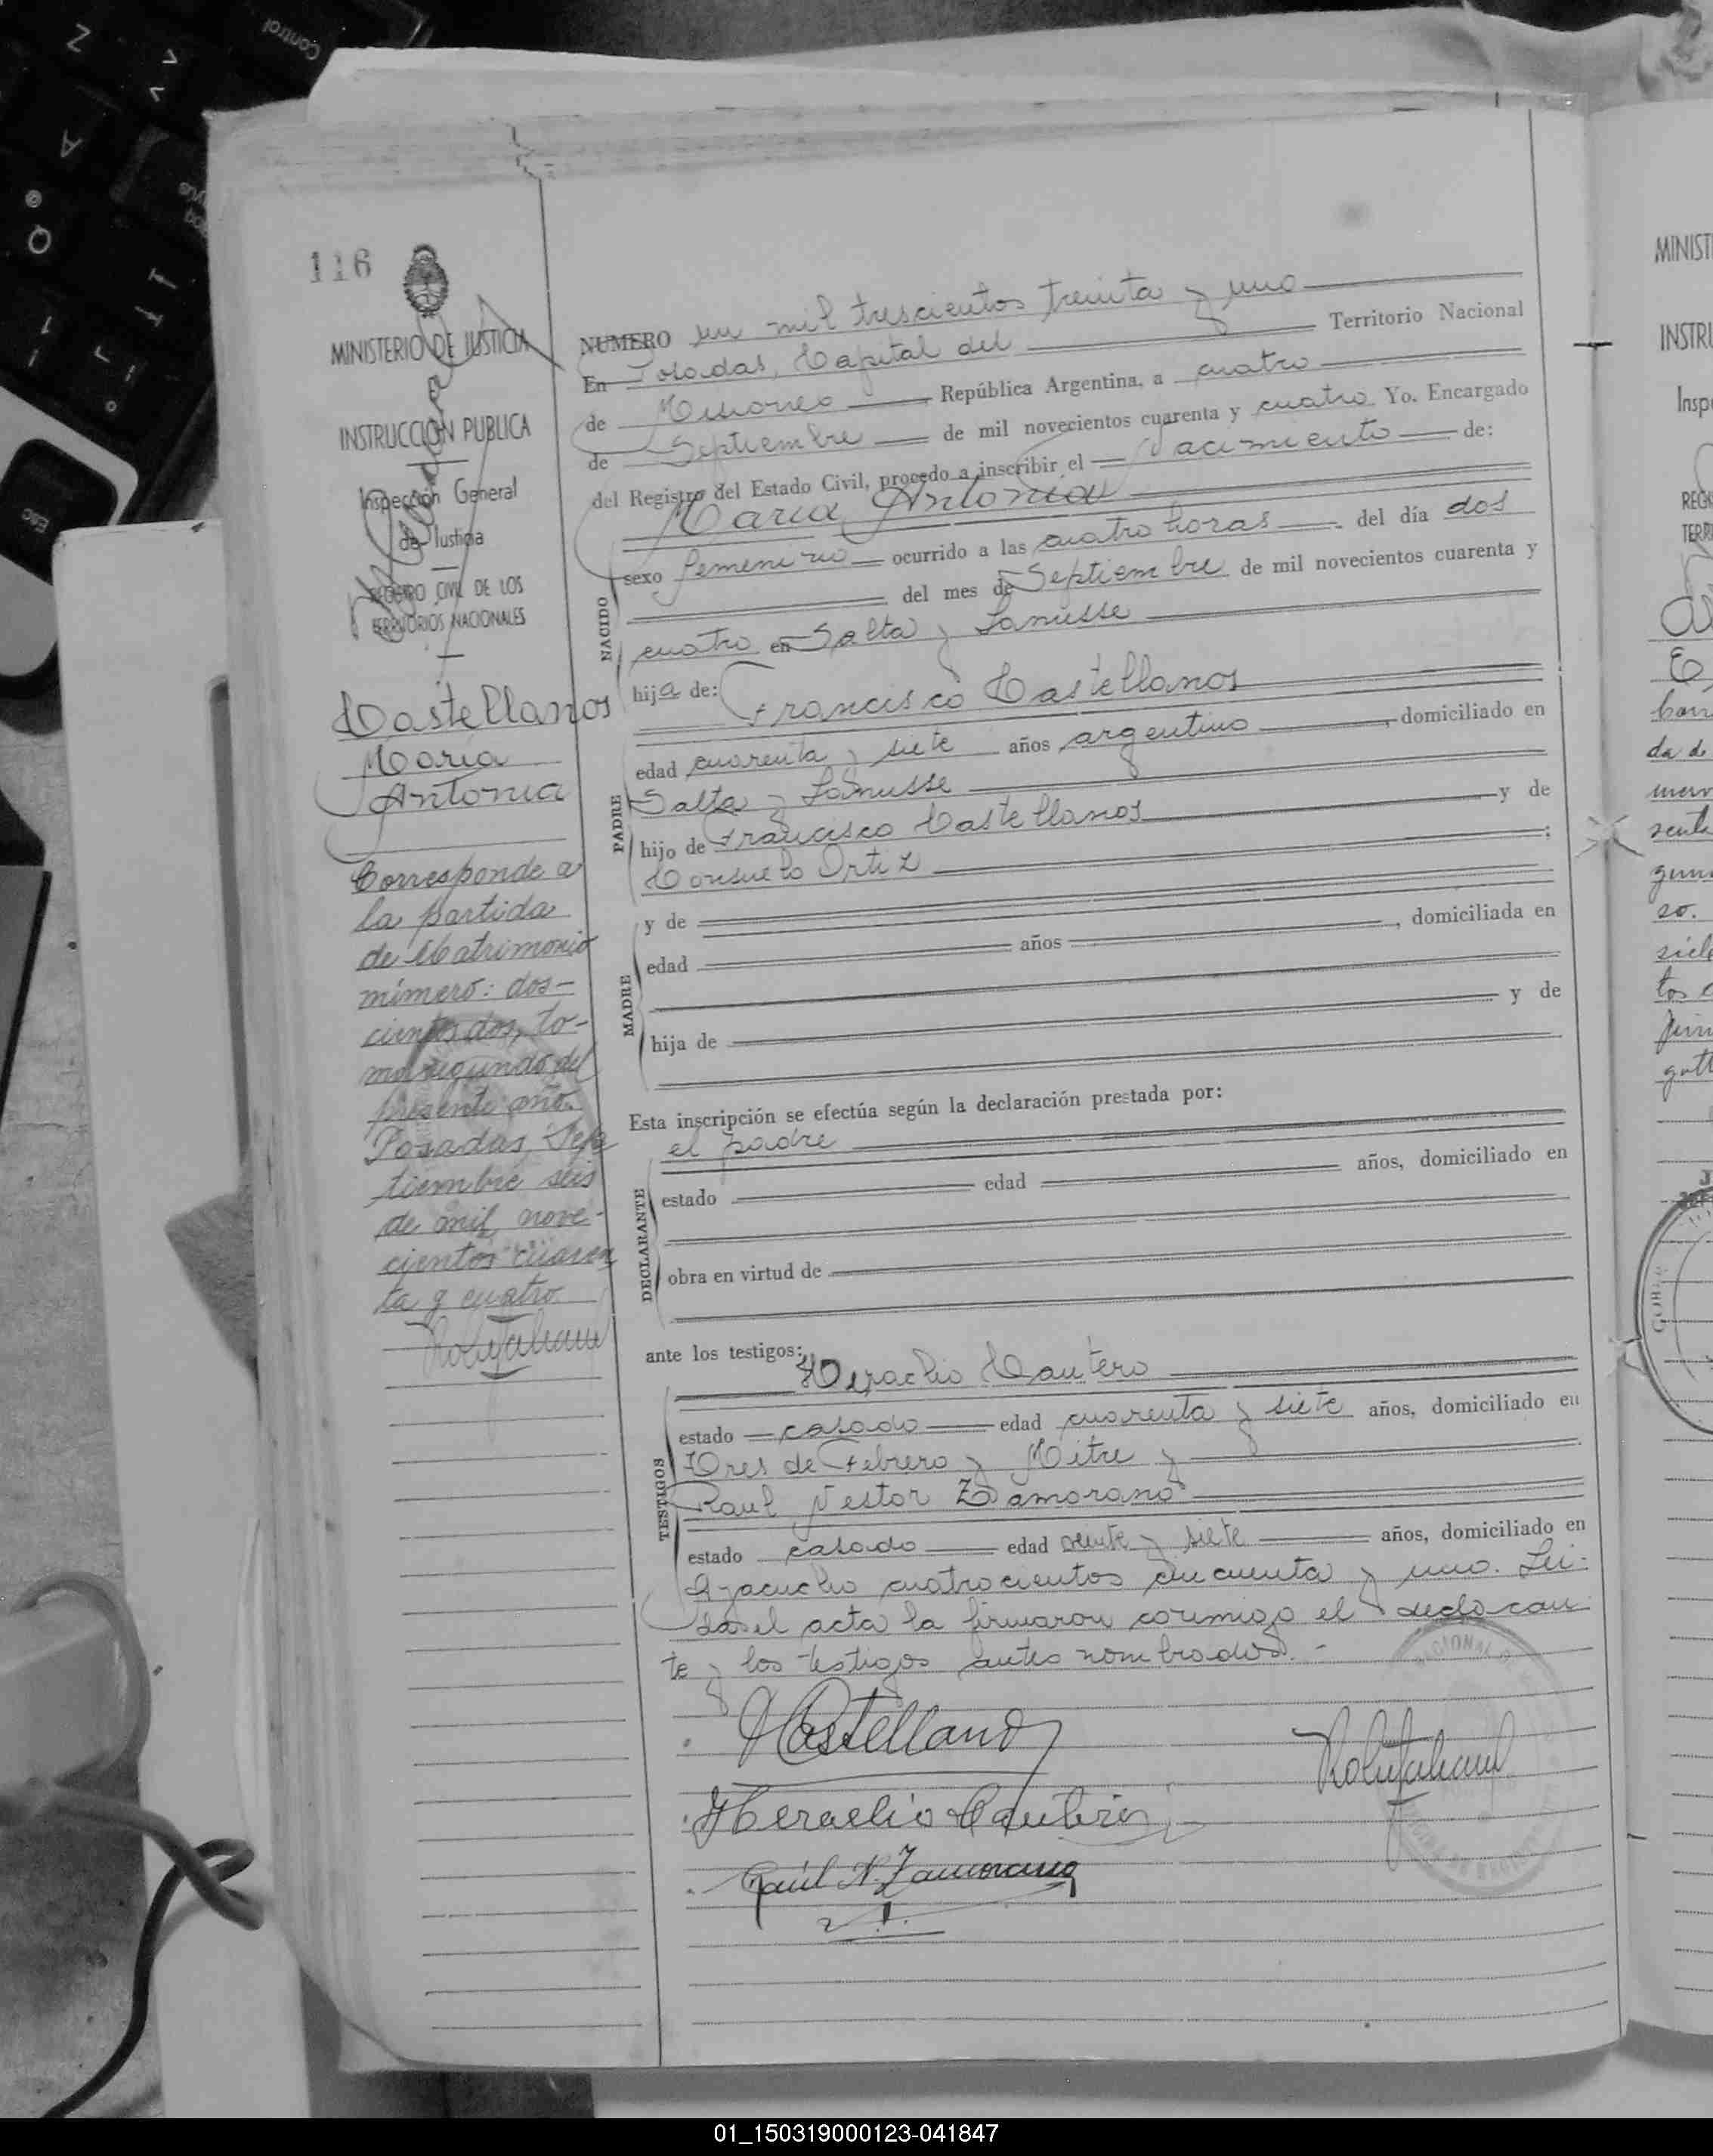 116
MINISTERIO DE JUSTICIA
INSTRUCCION PUBLICA
Inspección General
de Justicia
REGISTRO CIVIL DE LOS
TERRITORIOS NACIONALES
Castellanos
María
Antonia
Corresponde a
la partida
de Matrimonio
número: dos-
cientos dos, to-
mo segundo del
presente año.
Posadas, Sep
tiembre seis
de mil nove-
cientos cuaren
ta y cuatro
NUMERO un mil trescientos treinta y uno
En Posadas, Capital del Territorio Nacional
de Misiones República Argentina, a cuatro
de Septiembre de mil novecientos cuarenta y cuatro Yo. Encargado
del Registro del Estado Civil, procedo a inscribir el Nacimiento de:
María Antonia
NACIDO
sexo femenino ocurrido a las cuatro horas del día dos
del mes de Septiembre de mil novecientos cuarenta y
cuatro en Salta y Lanusse
hija de: Francisco Castellanos
PADRE
edad cuarenta y siete años argentino, domiciliado en
Salta y Lanusse
hijo de Francisco Castellanos y de
Consuelo Ortiz ;
MADRE
y de
edad años , domiciliada en
hija de y de
Esta inscripción se efectúa según la declaración prestada por:
el padre
DECLARANTE
estado edad años, domiciliado en
obra en virtud de
ante los testigos:
Heraclio Cantero
TESTIGOS
estado casado edad cuarenta y siete años, domiciliado en
Tres de Febrero y Mitre y
Raul Nestor Zamorano
estado casado edad veinte y siete años, domiciliado en
Ayacucho cuatrocientos cincuenta y uno. Lei-
da el acta la firmaron conmigo el declaran
te y los testigos antes nombrados.-
Castellanos
Heraclio Cantero
Raúl N. Zamorano
MINIST
INSTRU
Insp
REGI
TERR
01_150319000123-041847